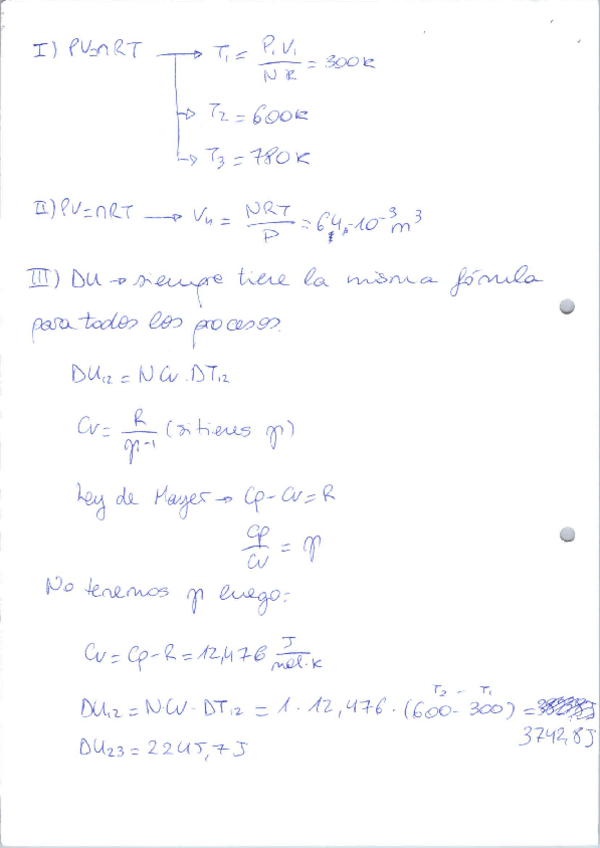 I) PV=nRT → T₁ = P₁V₁ / NR = 300K
→ T₂ = 600K
→ T₃ = 780K
II) PV=nRT → V₄ = NRT / P = 64,·10⁻³ m³
III) DU → siempre tiene la misma fórmula
para todos los procesos.
DU₁₂ = N Cv · DT₁₂
Cv = R / γ-1 (si tienes γ)
Ley de Mayer → Cp - Cv = R
Cp / Cv = γ
No tenemos γ luego:
Cv = Cp - R = 12,476 J / mol·K
T₂ - T₁
DU₁₂ = N Cv · DT₁₂ = 1 · 12,476 · (600 - 300) =
3742,8J
DU₂₃ = 2245,7J